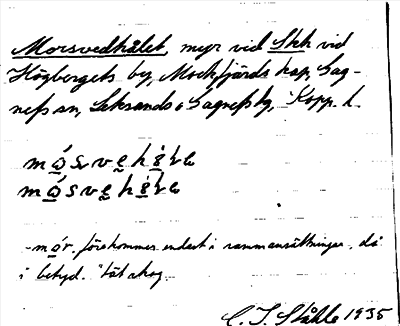 Morsvedhålet, myr vid Skh vid
Högbergets by, Mockfjärds kap, Gag-
nefs sn, Leksands o Gagnefs tg, Kopp. l.
-mór. förekommer endast i sammansättningar, då
i betyd. "tät skog
C. I. Ståhle 1935